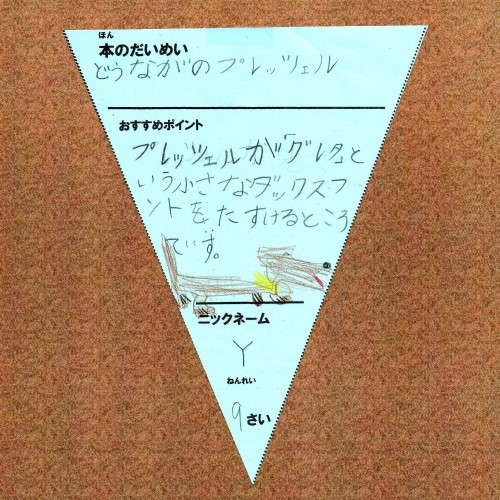 ほん
本のだいめい
どうながのプレッツェル
おすすめポイント
プレッツェルが「グレタ」と
いう小さなダックスフ
ントをたすけるところ
です。
ニックネーム
Y
ねんれい
9さい